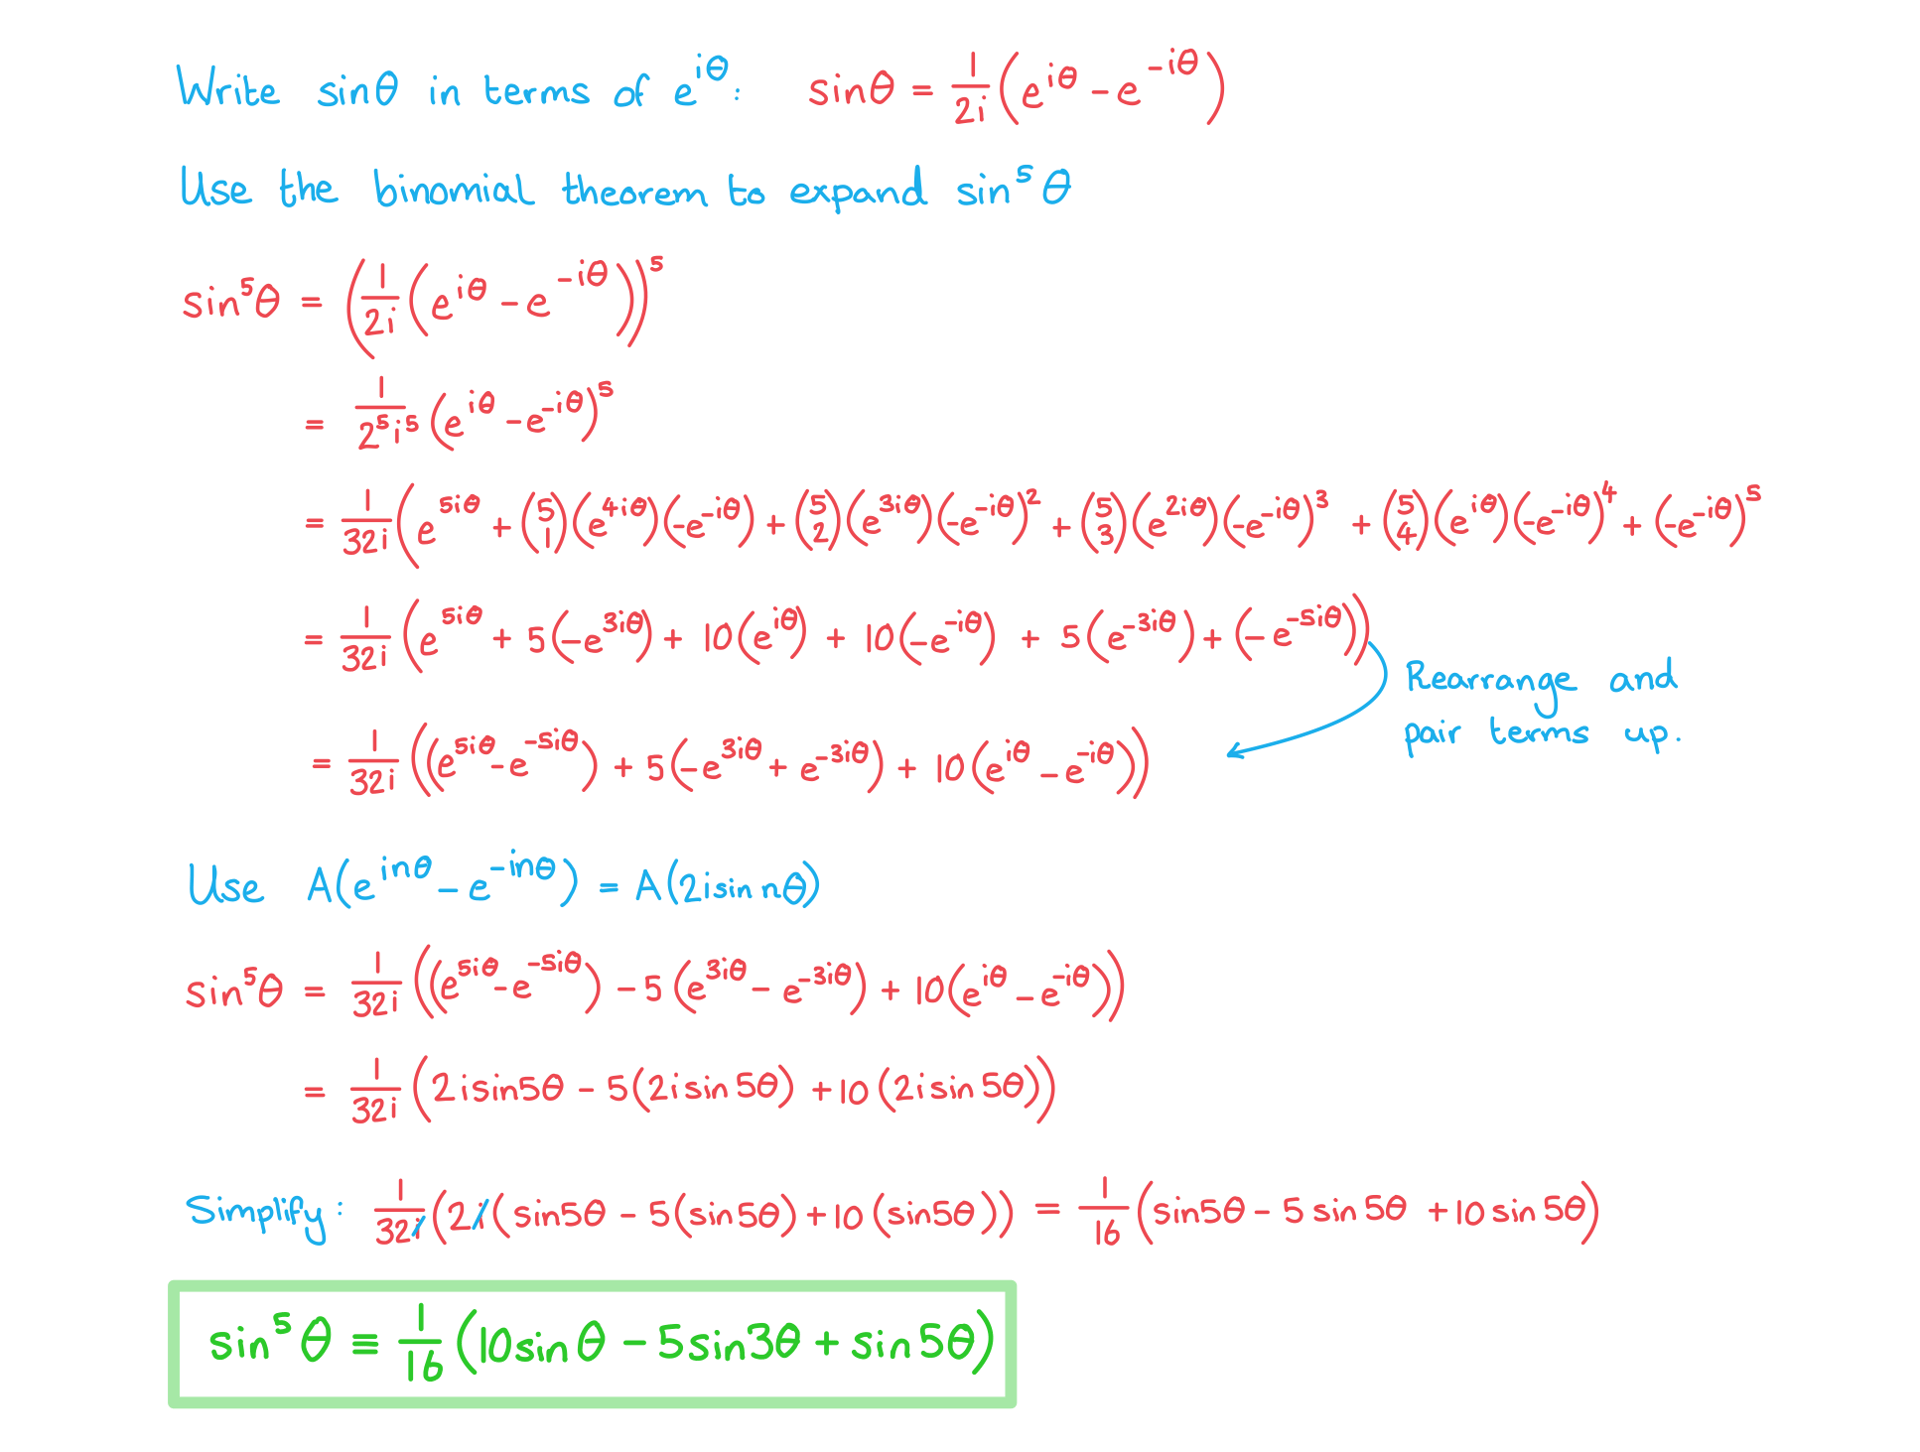 Write sinθ in terms of e^{iθ}: sinθ = \frac{1}{2i}(e^{iθ} - e^{-iθ})
Use the binomial theorem to expand sin^5 θ
sin^5θ = (\frac{1}{2i}(e^{iθ} - e^{-iθ}))^5
= \frac{1}{2^5 i^5}(e^{iθ} - e^{-iθ})^5
= \frac{1}{32i}(e^{5iθ} + \binom{5}{1}(e^{4iθ})(-e^{-iθ}) + \binom{5}{2}(e^{3iθ})(-e^{-iθ})^2 + \binom{5}{3}(e^{2iθ})(-e^{-iθ})^3 + \binom{5}{4}(e^{iθ})(-e^{-iθ})^4 + (-e^{-iθ})^5
= \frac{1}{32i}(e^{5iθ} + 5(-e^{3iθ}) + 10(e^{iθ}) + 10(-e^{-iθ}) + 5(e^{-3iθ}) + (-e^{-5iθ}))
Rearrange and
pair terms up.
= \frac{1}{32i}((e^{5iθ} - e^{-5iθ}) + 5(-e^{3iθ} + e^{-3iθ}) + 10(e^{iθ} - e^{-iθ}))
Use A(e^{inθ} - e^{-inθ}) = A(2isin nθ)
sin^5θ = \frac{1}{32i}((e^{5iθ} - e^{-5iθ}) - 5(e^{3iθ} - e^{-3iθ}) + 10(e^{iθ} - e^{-iθ}))
= \frac{1}{32i}(2isin5θ - 5(2isin5θ) + 10(2isin5θ))
Simplify: \frac{1}{32i}(2i(sin5θ - 5(sin5θ) + 10(sin5θ)) = \frac{1}{16}(sin5θ - 5sin5θ + 10sin5θ)
sin^5 θ ≡ \frac{1}{16}(10sinθ - 5sin3θ + sin5θ)